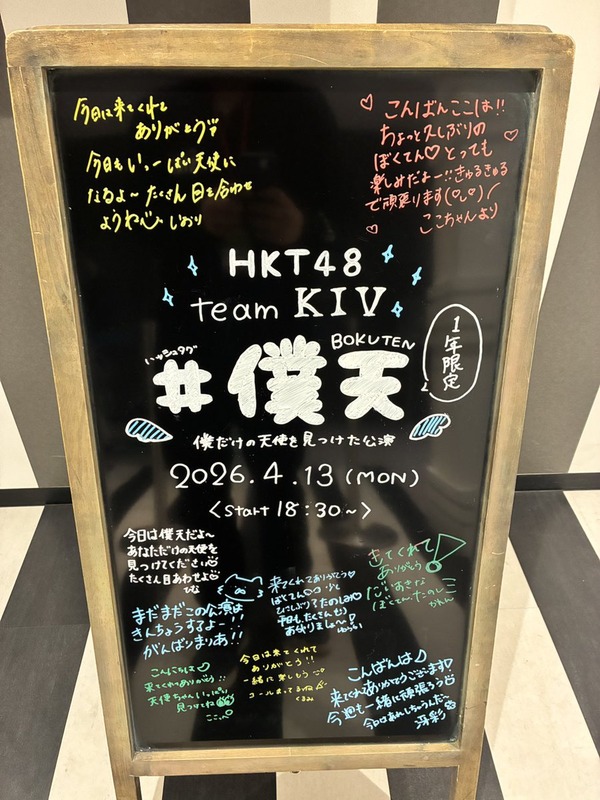 今日は来てくれて
ありがとうデデ
今日もいっーぱい天使に
なるよ〜たくさん目を合わせ
ようね
しおり
こんばんここは!!
ちょっと久しぶりの
ぼくてん♡とっても
楽しみだよー!!きゅるきゅる
で頑張ります
ここちゃんより
HKT48
team KIV
ハッシュタグ
BOKUTEN
#僕天
1年限定
僕だけの天使を見つけた公演
2026.4.13(MON)
<Start 18:30〜>
今日は僕天だよ〜
あなただけの天使を
見つけてください
たくさん目あわせよ
ひな
まだまだこの公演は
きんちょうするよー!!
がんばりまりあ!!
来てくれてありがとう♡
ぼくてん
少し
ひさしぶり?たのしみ♡
平日もたくさんもり
お祭りましょ〜!
きてくれて
ありがとう!
だいすきな
ぼくてん、たのしミ
かれん
こんにちは♡
来てくれてありがとう!!
天使ちゃんいっぱい
見つけてね
今日は来てくれて
ありがとう!!
一緒に楽しもう
コールまってるね
くるみ
こんばんは♪
来てくれてありがとうございます♡
今週も一緒に頑張ろう
今日はあれしちゃうんだ〜
冴彩